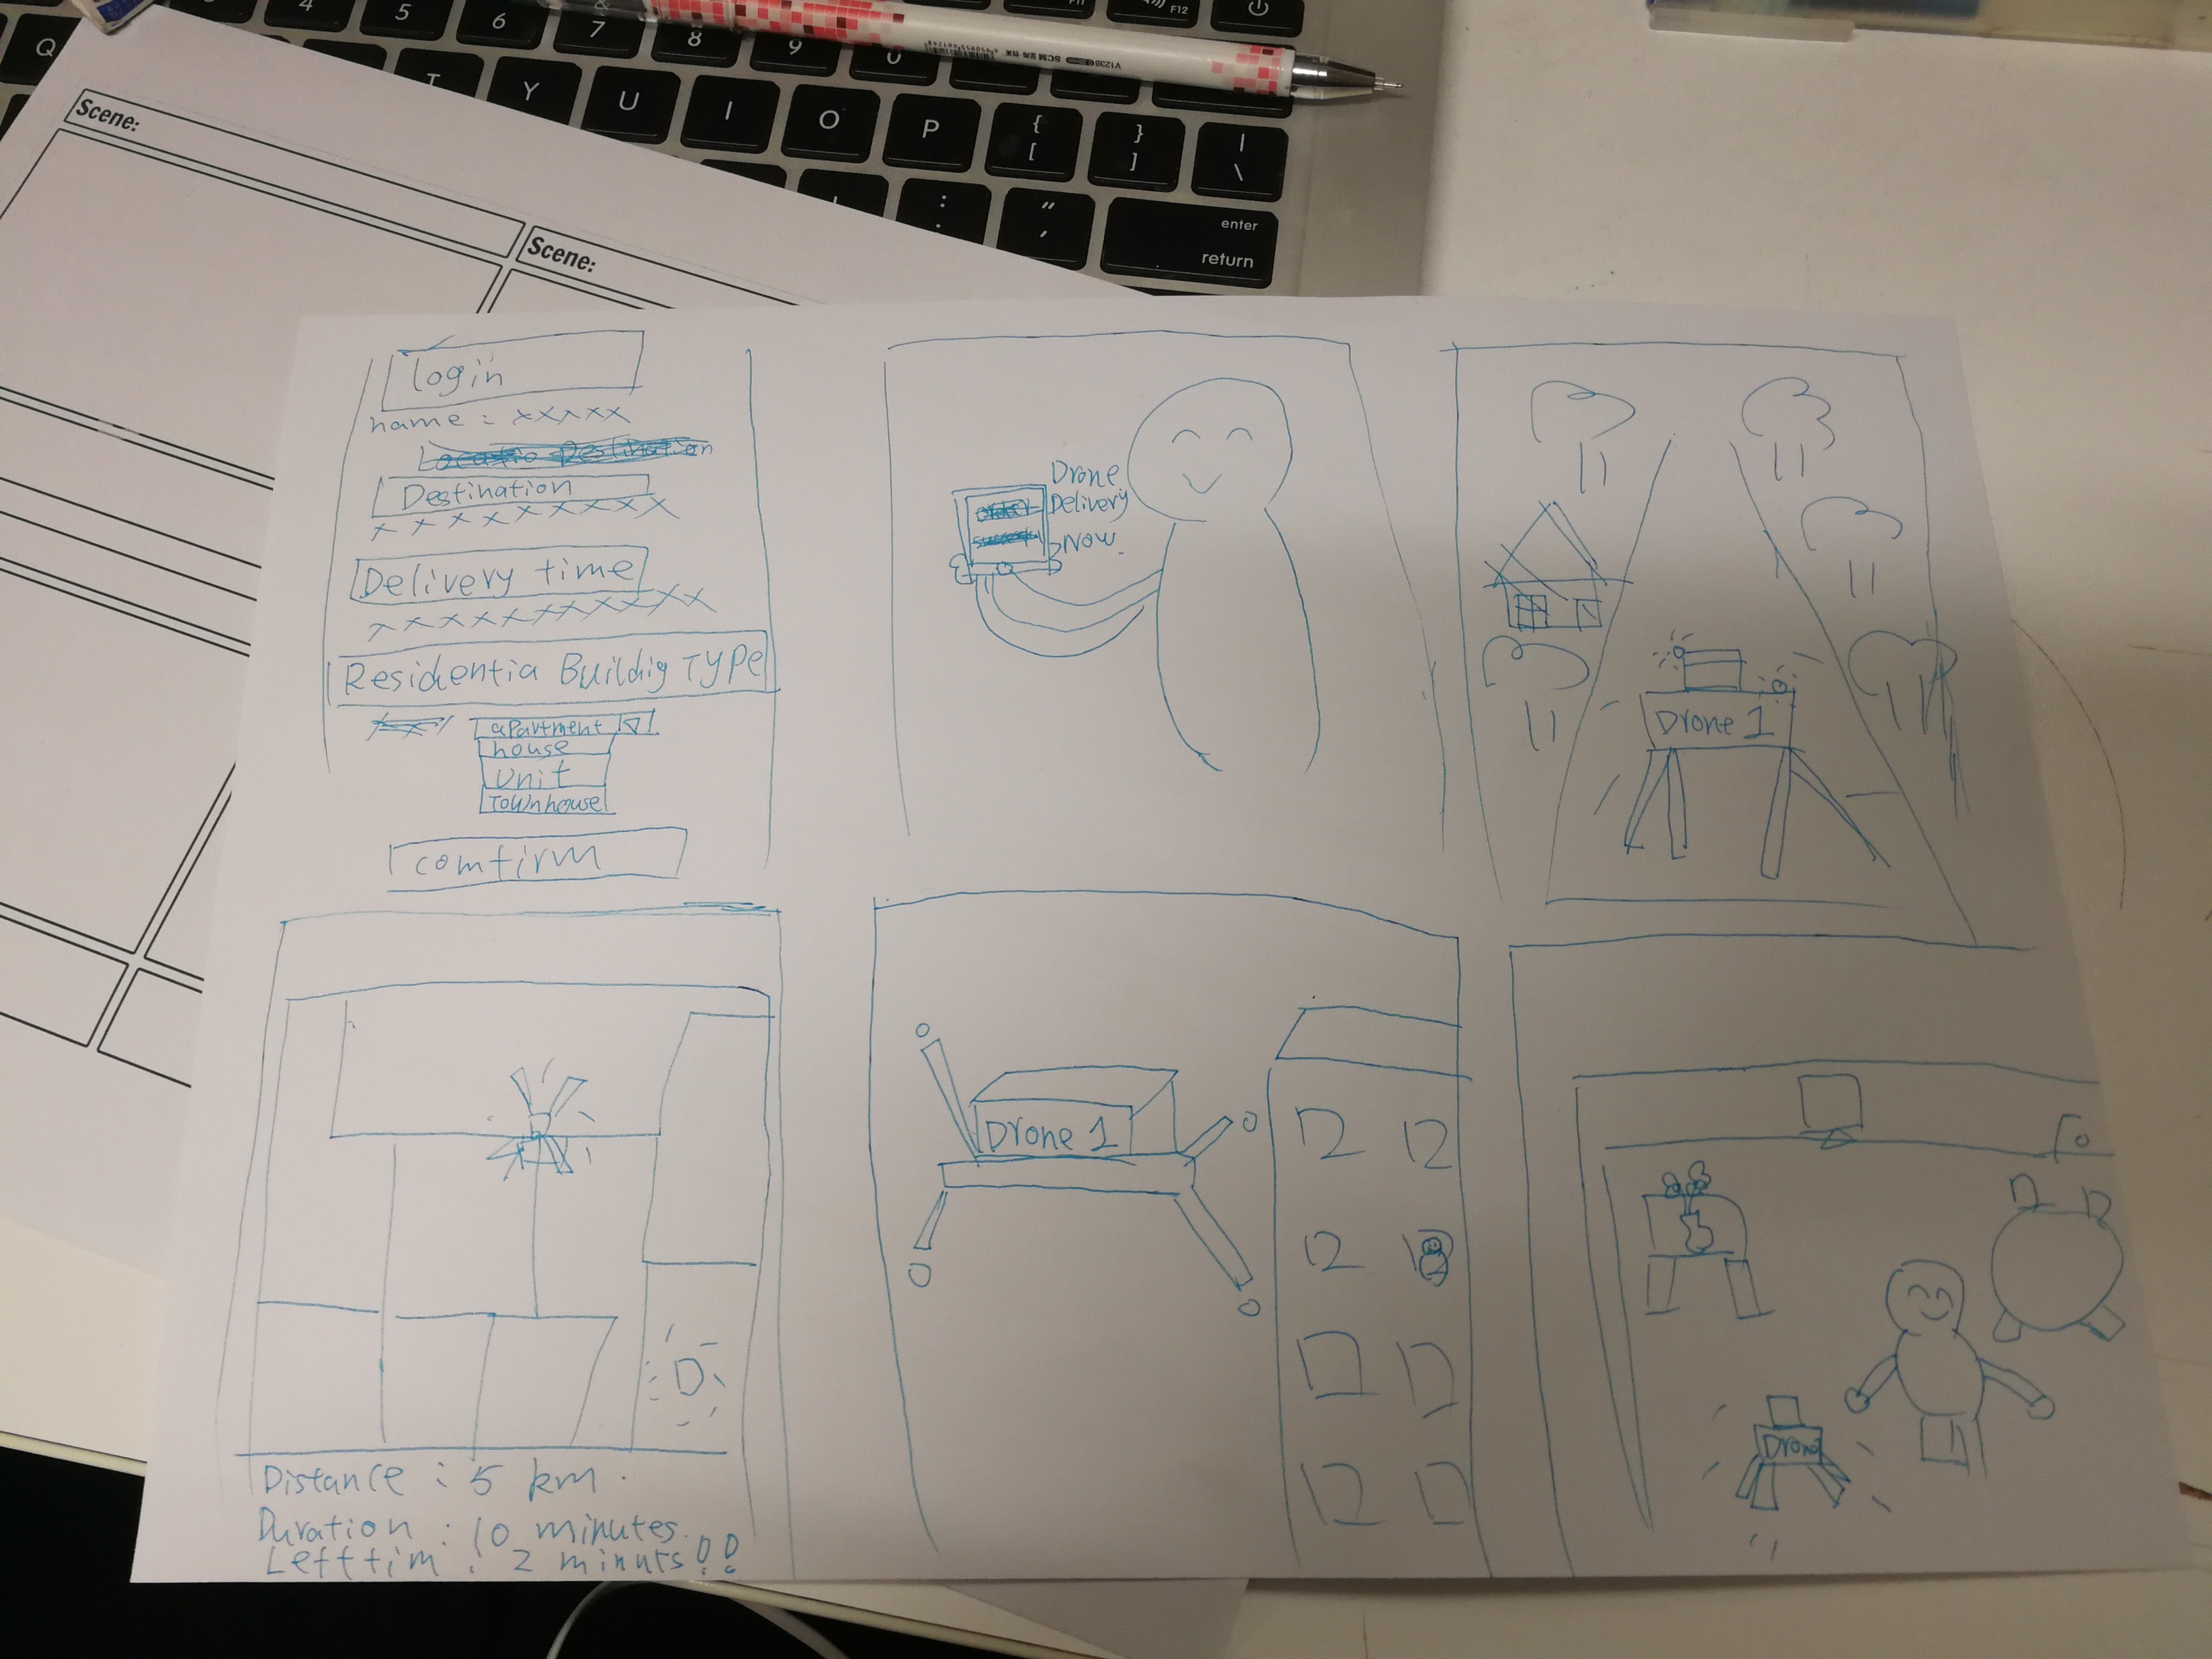 4
5
6
&
7
8
9
0
F11
F12
Q
T
Y
U
I
O
P
{
[
}
]
|
\
L
:
;
"
,
enter
return
V1238
SCM
Scene:
Scene:
login
name : xxxxx
Locatio Destination
Destination
x x x x x x x x x
Delivery time
x x x x x x x x x x x
Residentia Buildig TYPe
apartment
house
Unit
Townhouse
comfirm
Drone
Delivery
Now.
order
success
Drone 1
Distance : 5 km.
Duration : 10 minutes.
Lefttim : 2 minuts!!
D
Drone 1
Drone